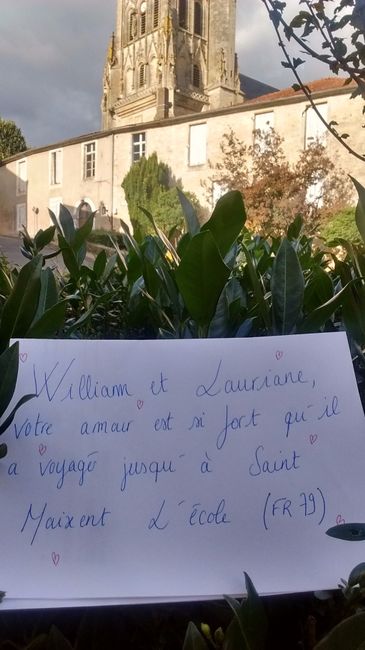 William et Lauriane,
votre amour est si fort qu'il
a voyagé jusqu'à Saint
Maixent L'école (FR 79)